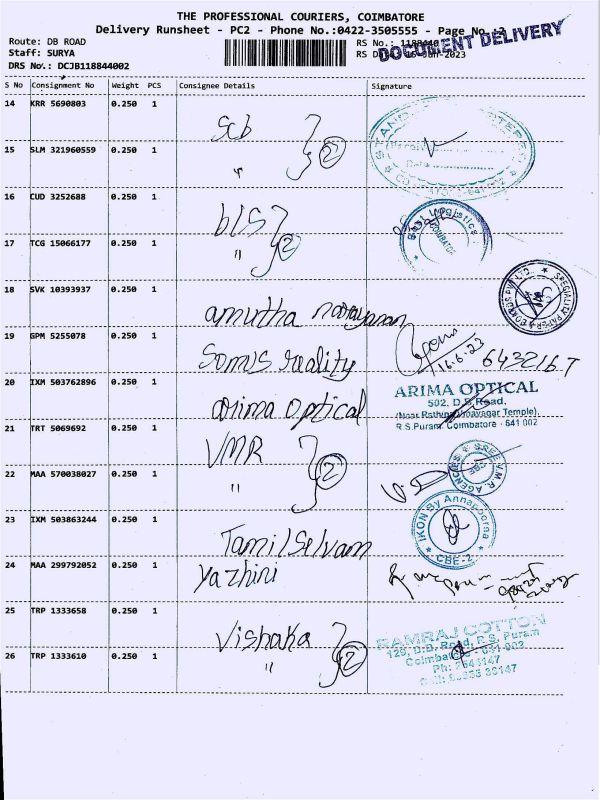 THE PROFESSIONAL COURIERS, COIMBATORE
Delivery Runsheet - PC2 - Phone No.:0422-3505555 - Page No.:2
Route: DB ROAD
RS No.:
DOCUMENT DELIVERY
Staff: SURYA
DRS No.: DCJB118844002
S No Consignment No Weight PCS Consignee Details Signature
14 KRR 5690803 0.250 1 Scb
15 SLM 321960559 0.250 1 " 2
16 CUD 3252688 0.250 1 bLS
17 TCG 15066177 0.250 1 " 2
18 SVK 10393937 0.250 1 amutha narayanan
19 GPM 5255078 0.250 1 Somus reality
16.6.23
20 IXM 503762896 0.250 1 arima optical
ARIMA OPTICAL
502, D.B.Road,
R.S.Puram, Coimbatore - 641 002
21 TRT 5069692 0.250 1 VMR
22 MAA 570038027 0.250 1 " 2
23 IXM 503863244 0.250 1 Tamil Selvam
IKON By Annapoorna
CBE-2
24 MAA 299792052 0.250 1 yazhini
25 TRP 1333658 0.250 1 Vishaka
RAMRAJ COTTON
129, D.B. Road, R.S. Puram
26 TRP 1333610 0.250 1 " 2